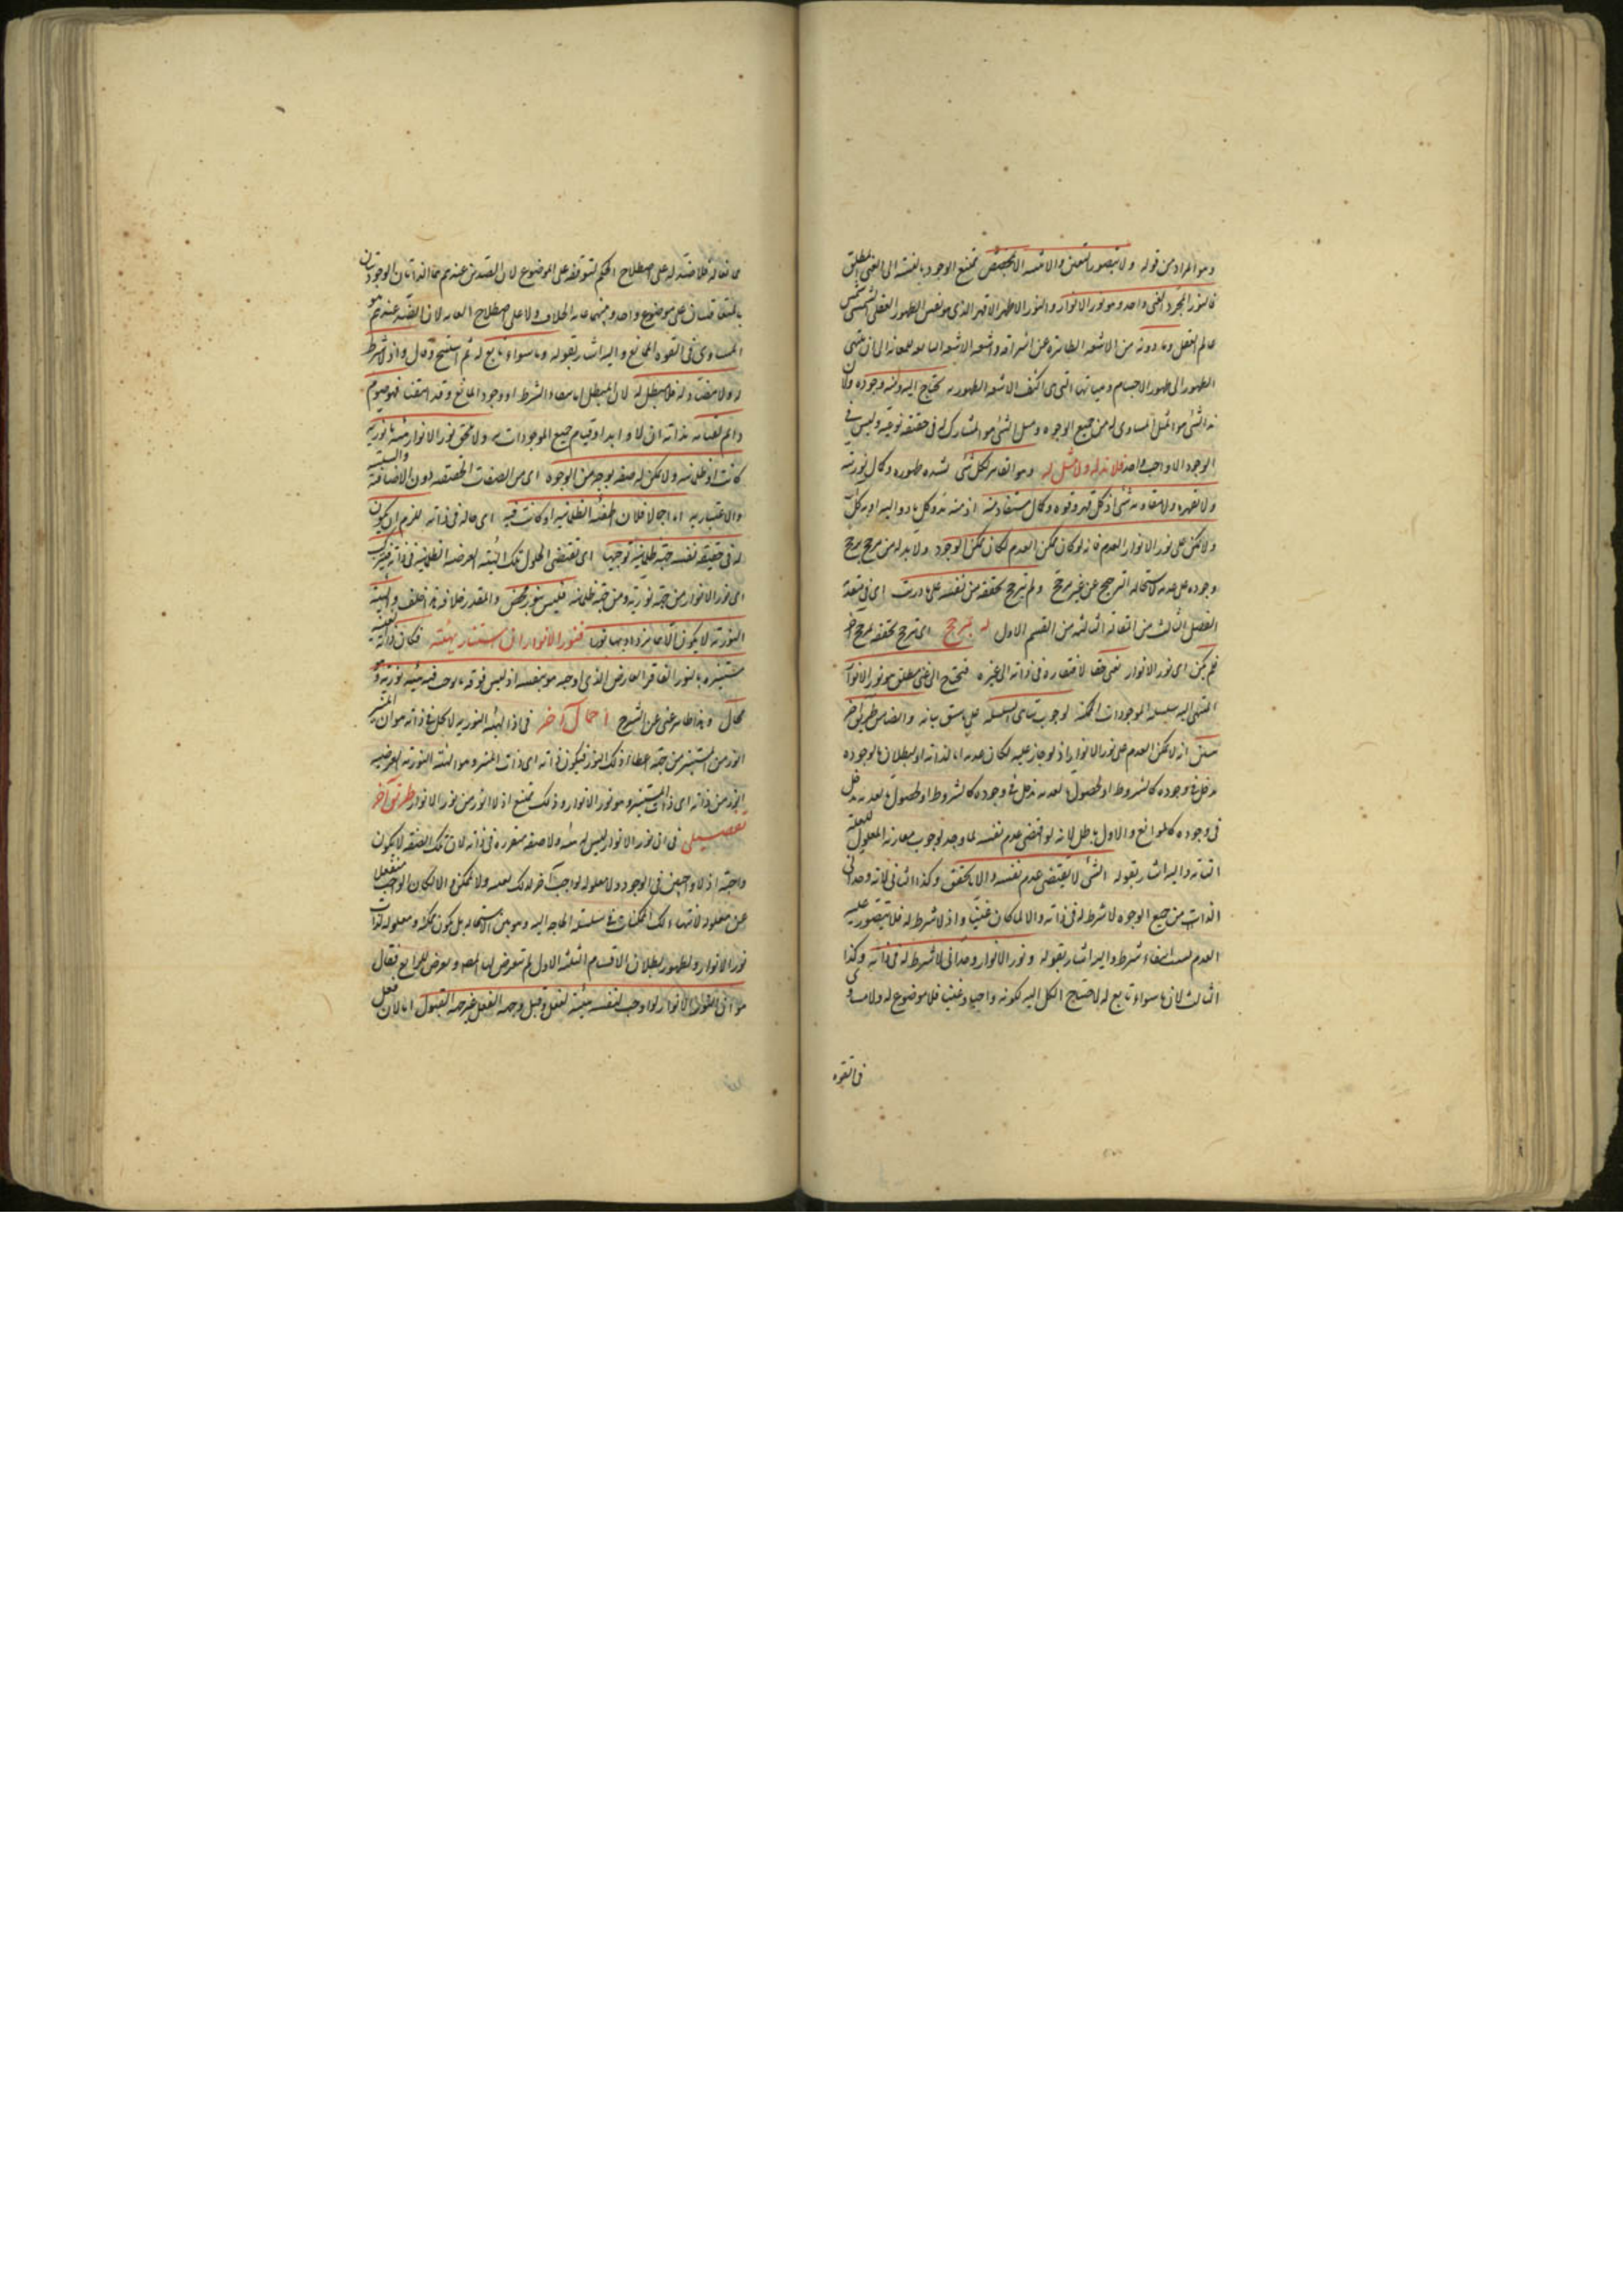 وهو المراد من قوله ولا يتصور التعين والاثنينية الا بمخصص يمتنع الوجود بالنسبة الى الغنى المطلق
فالنور المجرد الغنى واحد وهو نور الانوار والنور الاظهر الاقهر الذى هو نفس الظهور العقلى
عالم العقل وما دونه من الاشعة عن اشراقه واشعة الاشعة الى ان ينتهى
الظهور الى ظهور الاجسام وهيآتها التى هى اكثف الاشعة الظهورية يحتاج اليه ومنه وجوده ولما
ند الشىء هو المثل المساوى له من جميع الوجوه ومثل الشىء هو المشارك له فى حقيقة نوعية وليس فى
الوجود الا واجب واحد فلا ند له ولا مثل له وهو القاهر لكل شىء لشدة ظهوره وكمال نوريته
ولا يقهره ولا يقاومه شىء اذ كل قهر وقوة وكمال مستفاد منه اذ منه بدو كل
ولا يمكن على نور الانوار العدم فانه لو كان ممكن العدم لكان ممكن الوجود ولا بد له من مرجح يرجح
وجوده على عدمه لاستحالة الترجح عن غير مرجح ولم يترجح تحققه من نفسه على ما دريت اى فى
الفصل الثالث من المقالة الثالثة من القسم الاول له بمرجح اى يترجح تحققه بمرجح آخر
فلم يكن اى نور الانوار بغنى حقا لافتقاره فى ذواته الى غيره فيحتاج الى غنى مطلق هو نور الانوار
المنتهى اليه سلسلة الموجودات الممكنة لوجوب تناهى السلسلة على ما سبق بيانه وايضا من طريق آخر
انه لا يمكن العدم على نور الانوار اذ لو جاز عليه لكان عدمه اما لذاته او لبطلان ما لوجوده
مدخل فى وجوده كالشروط او لحصول ما لعدمه مدخل
فى وجوده كالموانع والاول باطل لانه لو اقتضى عدم نفسه لما وجد لوجوب مقارنة المعلول للعلة
التامة واليه اشار بقوله الشىء لا يقتضى عدم نفسه والا ما تحقق وكذا الثانى لانه وحدانى
الذات من جميع الوجوه لا شرط له فى ذاته والا لما كان غنيا واذ لا شرط له فلا يتصور عليه
العدم لسبب انتفاء شرط واليه اشار بقوله ونور الانوار وحدانى لا شرط له فى ذاته وكذا
الثالث لان ما سواه تابع له لاحتياج الكل اليه لكونه واجبا وغنيا فلا موضوع له ولا مساوى
فى القوة
ممانعا له فلا ضد له على اصطلاح الحكم لتوقفه على الموضوع لان الضدين عندهم هما الذاتان الوجوديتان
المتعاقبتان على موضوع واحد وبينهما غاية الخلاف ولا على اصطلاح العامة لان الضد عندهم هو
المساوى فى القوة الممانع واليه اشار بقوله وما سواه تابع له ثم استنتج وقال واذ لا شرط
له ولا مضاد له فلا مبطل له لان المبطل اما انتفاء الشرط او وجود المانع وقد انتفيا فهو قيوم
دائم لقيامه بذاته ازلا وابدا وقيام جميع الموجودات به ولا يلحق نور الانوار هيئة ما نورية
كانت او ظلمانية ولا يمكن له صفة بوجه من الوجوه اى من الصفات الحقيقية دون الاضافية والسلبية
والاعتبارية اما اجمالا فلان الهيئة الظلمانية لو كانت فيه اى حالة فى ذاته للزم ان يكون
له فى حقيقة نفسه جهة ظلمانية توجبها اى تقتضى الحلول تلك الهيئة العرضية الظلمانية فى ذاته فيتركب
اى نور الانوار من جهة نورية ومن جهة ظلمانية فليس بنور محض والمقدر خلافه هذا خلف والهيئة
النورية لا يكون الا فيما يزداد بها نورا فنور الانوار ان استنار بهيئة فكان ذاته
مستنيرة بالنور الفاقر العارض الذى اوجبه هو بنفسه اذ ليس فوقه ما يوجب فيه هيئة نورية وهو
محال وهذا ظاهر غنى عن الشرح اجمال آخر فى ان الهيئة النورية لا تحل فى ذاته هو ان المنير
انور من المستنير من جهة اعطاء ذلك النور فيكون ذاته اى ذات المنير وهو الهيئة النورية العرضية
انور من ذاته اى ذات المستنير وهو نور الانوار وذلك ممتنع اذ لا انور من نور الانوار طريق آخر
تفصيلى فى ان نور الانوار ليس له هيئة ولا صفة متقررة فى ذاته لان تلك الصفة لا يكون
واجبة اذ لا واجبين فى الوجود ولا معلولة لواجب آخر لذلك بعينه ولا لممكن والا لكان الواجب منفعلا
عن معلوله لانتهاء تلك الممكنات فى سلسلة الحاجة اليه وهو بين الاستحالة بل يكون ممكنة ومعلولة لذات
نور الانوار ولظهور بطلان الاقسام الثلثة الاول لم يتعرض لها المص وتعرض للرابع فقال
هو ان نور الانوار لو اوجب لنفسه هيئة لفعل وقبل وجهة الفعل غير جهة القبول اما لان فعل